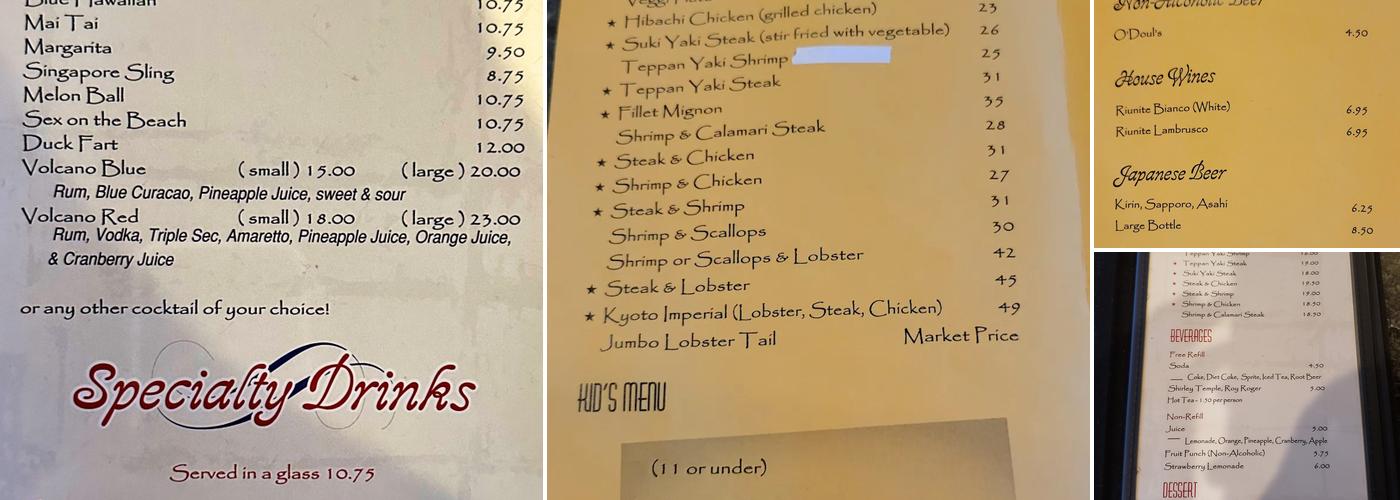 Blue Hawaiian 10.75
Mai Tai 10.75
Margarita 9.50
Singapore Sling 8.75
Melon Ball 10.75
Sex on the Beach 10.75
Duck Fart 12.00
Volcano Blue (small) 15.00 (large) 20.00
Rum, Blue Curacao, Pineapple Juice, sweet & sour
Volcano Red (small) 18.00 (large) 23.00
Rum, Vodka, Triple Sec, Amaretto, Pineapple Juice, Orange Juice,
& Cranberry Juice
or any other cocktail of your choice!
Specialty Drinks
Served in a glass 10.75
★ Hibachi Chicken (grilled chicken) 23
★ Suki Yaki Steak (stir fried with vegetable) 26
Teppan Yaki Shrimp 25
★ Teppan Yaki Steak 31
★ Fillet Mignon 35
Shrimp & Calamari Steak 28
★ Steak & Chicken 31
★ Shrimp & Chicken 27
★ Steak & Shrimp 31
Shrimp & Scallops 30
Shrimp or Scallops & Lobster 42
★ Steak & Lobster 45
★ Kyoto Imperial (Lobster, Steak, Chicken) 49
Jumbo Lobster Tail Market Price
KID'S MENU
(11 or under)
Non-Alcoholic Beer
O'Doul's 4.50
House Wines
Riunite Bianco (White) 6.95
Riunite Lambrusco 6.95
Japanese Beer
Kirin, Sapporo, Asahi 6.25
Large Bottle 8.50
Teppan Yaki Shrimp
★ Teppan Yaki Steak 19.00
★ Suki Yaki Steak 18.00
★ Steak & Chicken 19.50
★ Steak & Shrimp 19.00
★ Shrimp & Chicken 18.50
Shrimp & Calamari Steak 18.50
BEVERAGES
Free Refill
Soda 4.50
Coke, Diet Coke, Sprite, Iced Tea, Root Beer
Shirley Temple, Roy Roger 5.00
Hot Tea - 1.50 per person
Non-Refill
Juice 5.00
Lemonade, Orange, Pineapple, Cranberry, Apple
Fruit Punch (Non-Alcoholic) 5.75
Strawberry Lemonade 6.00
DESSERT